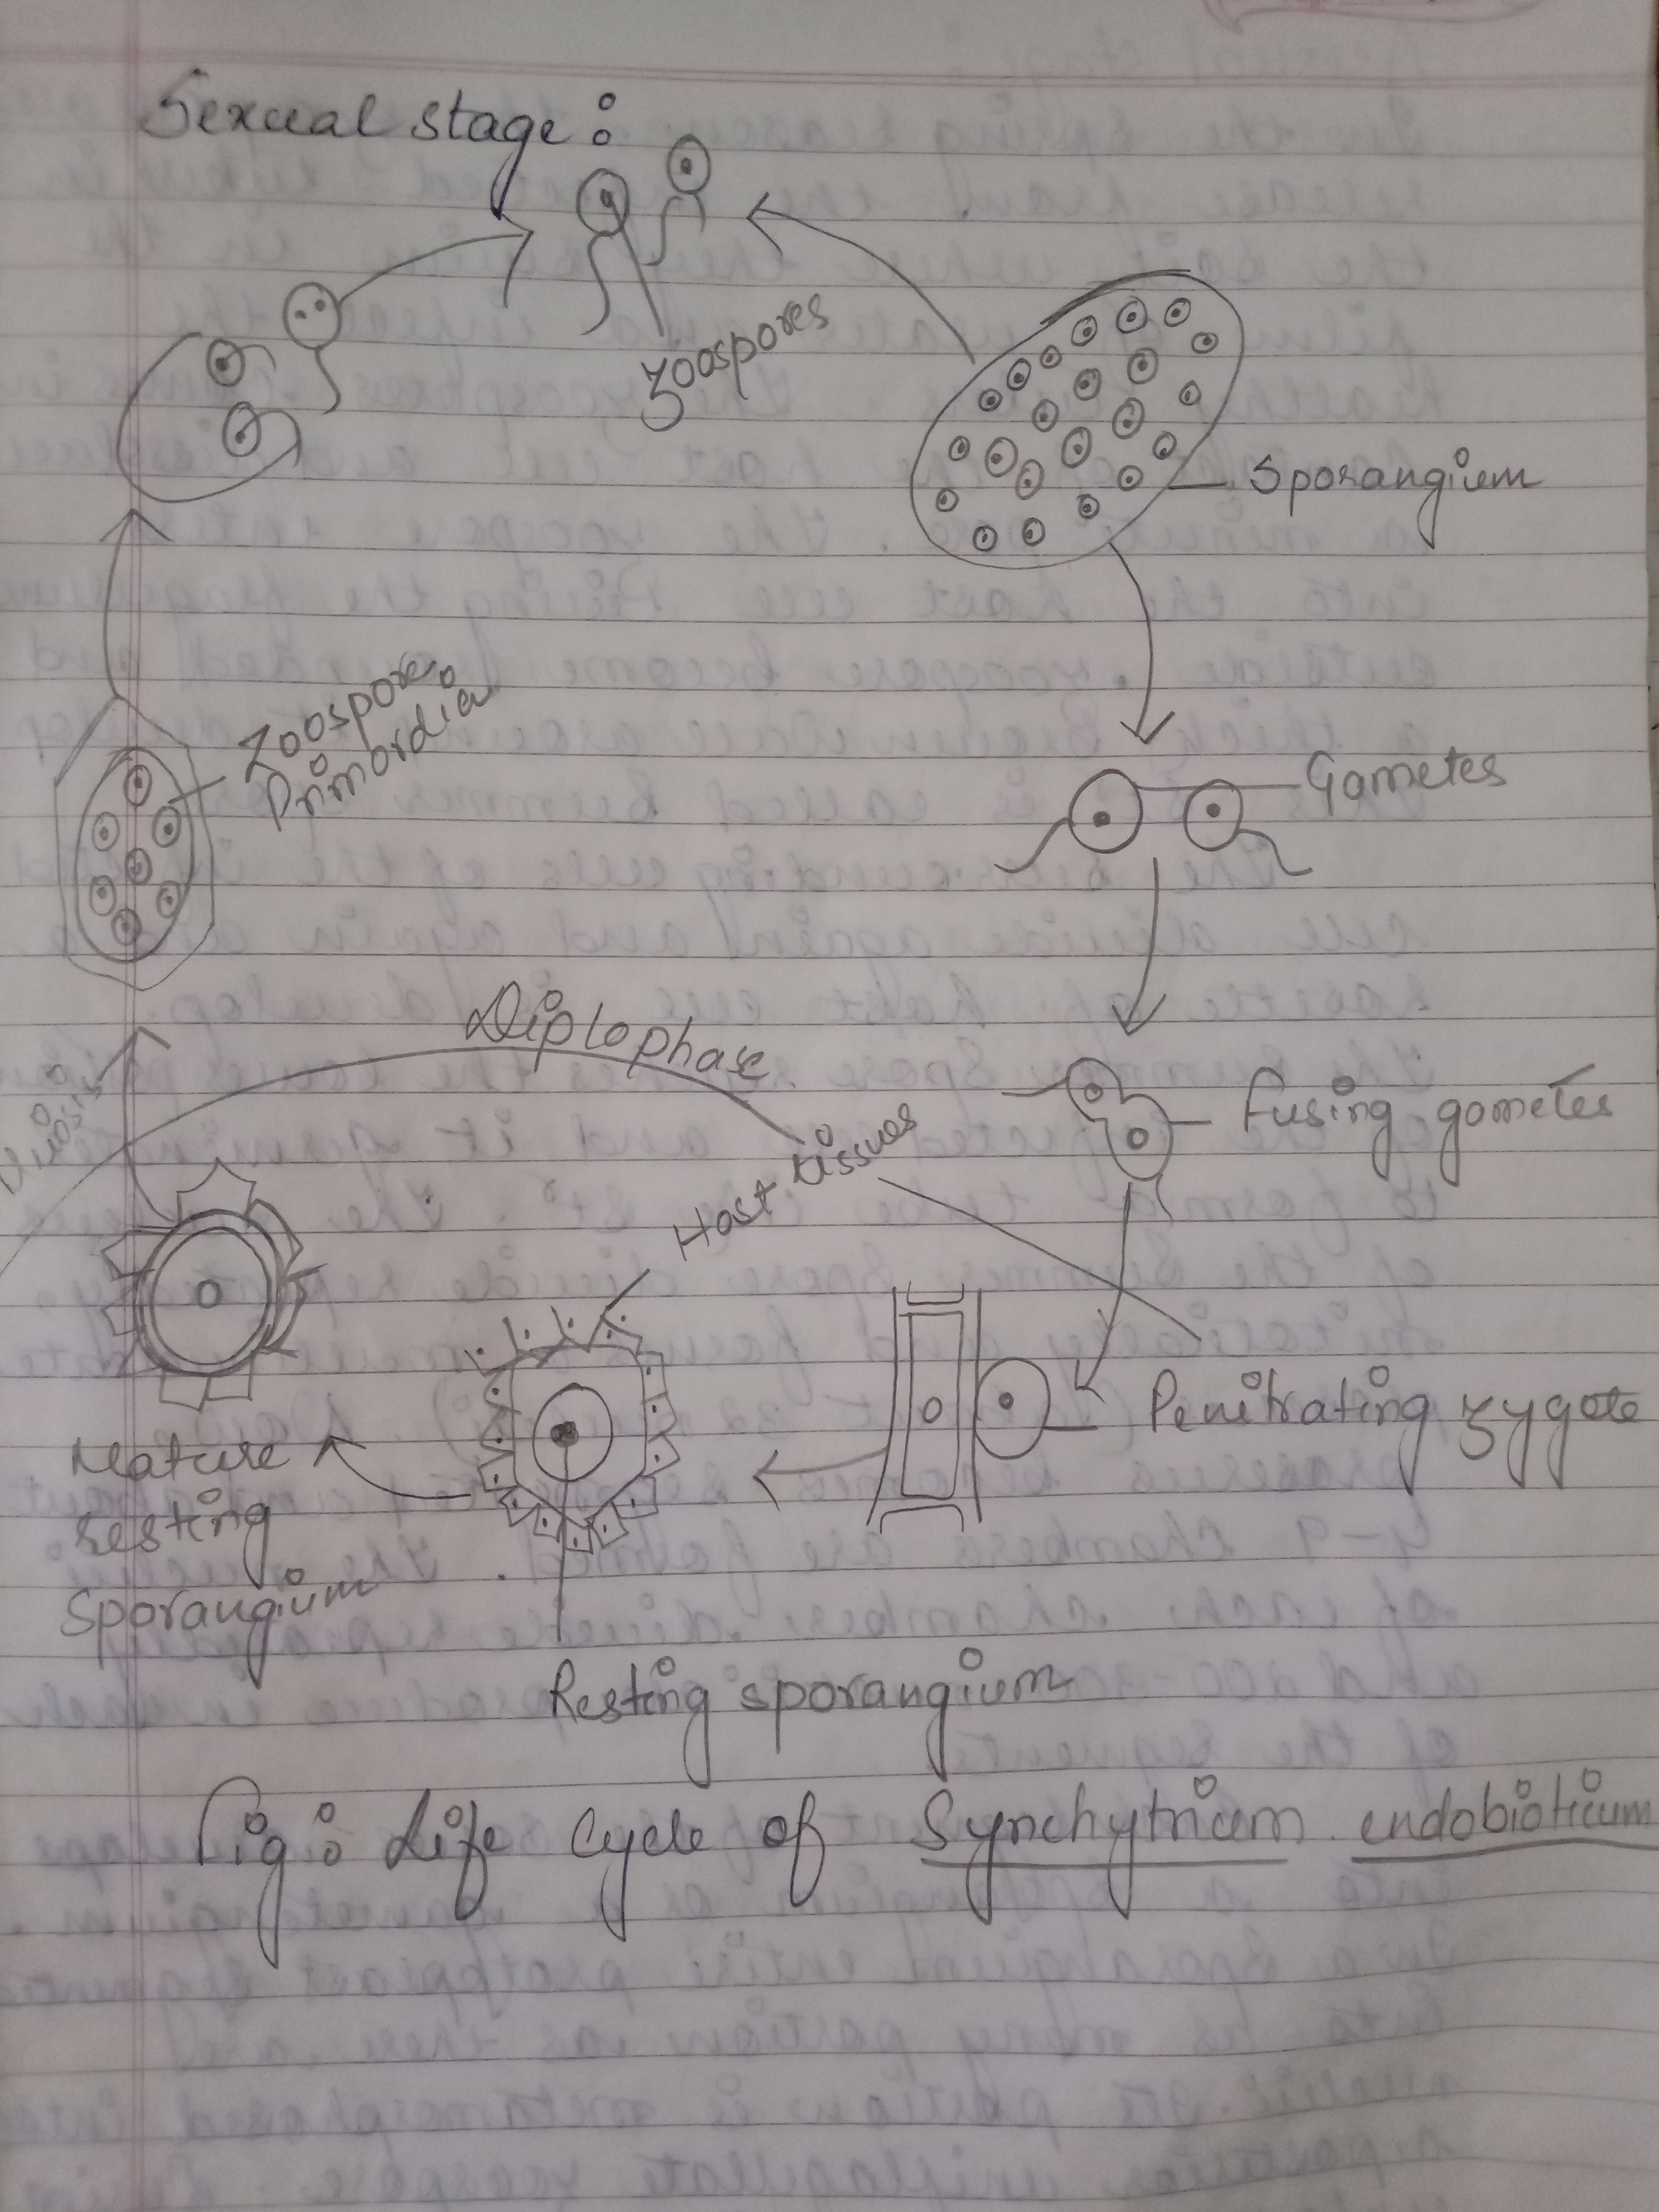 Sexual stage:
Zoospores
Sporangium
Zoospore
Primordia
Gametes
Diplophase
Fusing gometes
Host tissues
Penitrating zygote
Mature
resting
Sporangium
Resting sporangium
Fig: Life Cycle of Synchytrium endobioticum